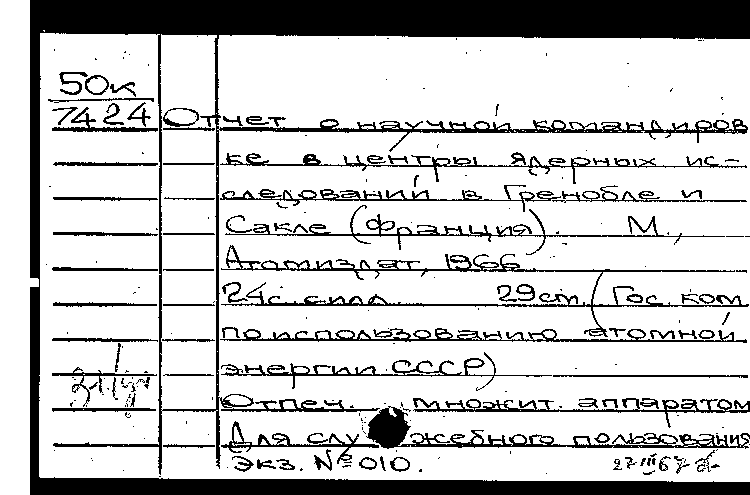 50к
7424 Отчет о научной командиров
ке в центры ядерных ис-
следований в Гренобле и
Сакле (Франция). М.,
Атомиздат, 1966.
24с. илл. 29см. (Гос. ком.
по использованию атомной
энергии СССР)
Отпеч. множит. аппаратом
Для служебного пользования
Экз. № 010. 27 III 67